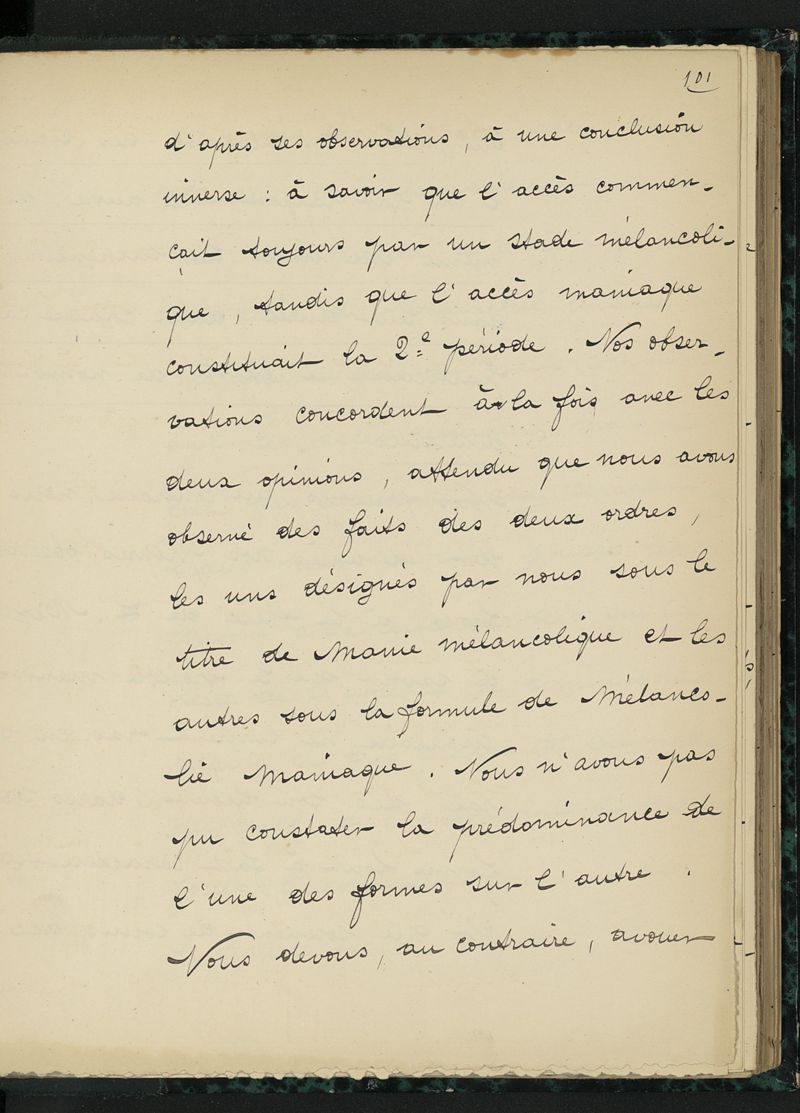 101
d'après ses observations, à une conclusion
inverse : à savoir que l'accès commen-
çait toujours par un stade mélancoli-
que, tandis que l'accès maniaque
constituait la 2e période. Nos obser-
vations concordent à la fois avec les
deux opinions, attendu que nous avons
observé des faits des deux ordres,
les uns désignés par nous sous le
titre de Manie mélancolique et les
autres sous la formule de Mélanco-
lie Maniaque. Nous n'avons pas
pu constater la prédominance de
l'une des formes sur l'autre.
Nous devons, au contraire, avouer